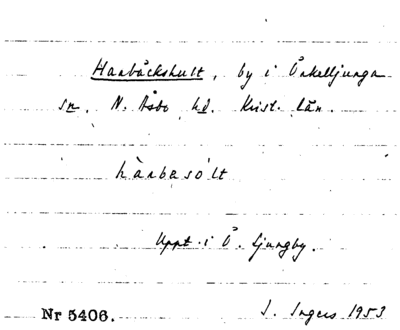 Harbäckshult, by i Örkelljunga
sn. N. Åsbo hd. Krist. län.
hàrbasólt
Uppt. i Ö. Ljungby.
Nr 5406. I. Ingers 1953